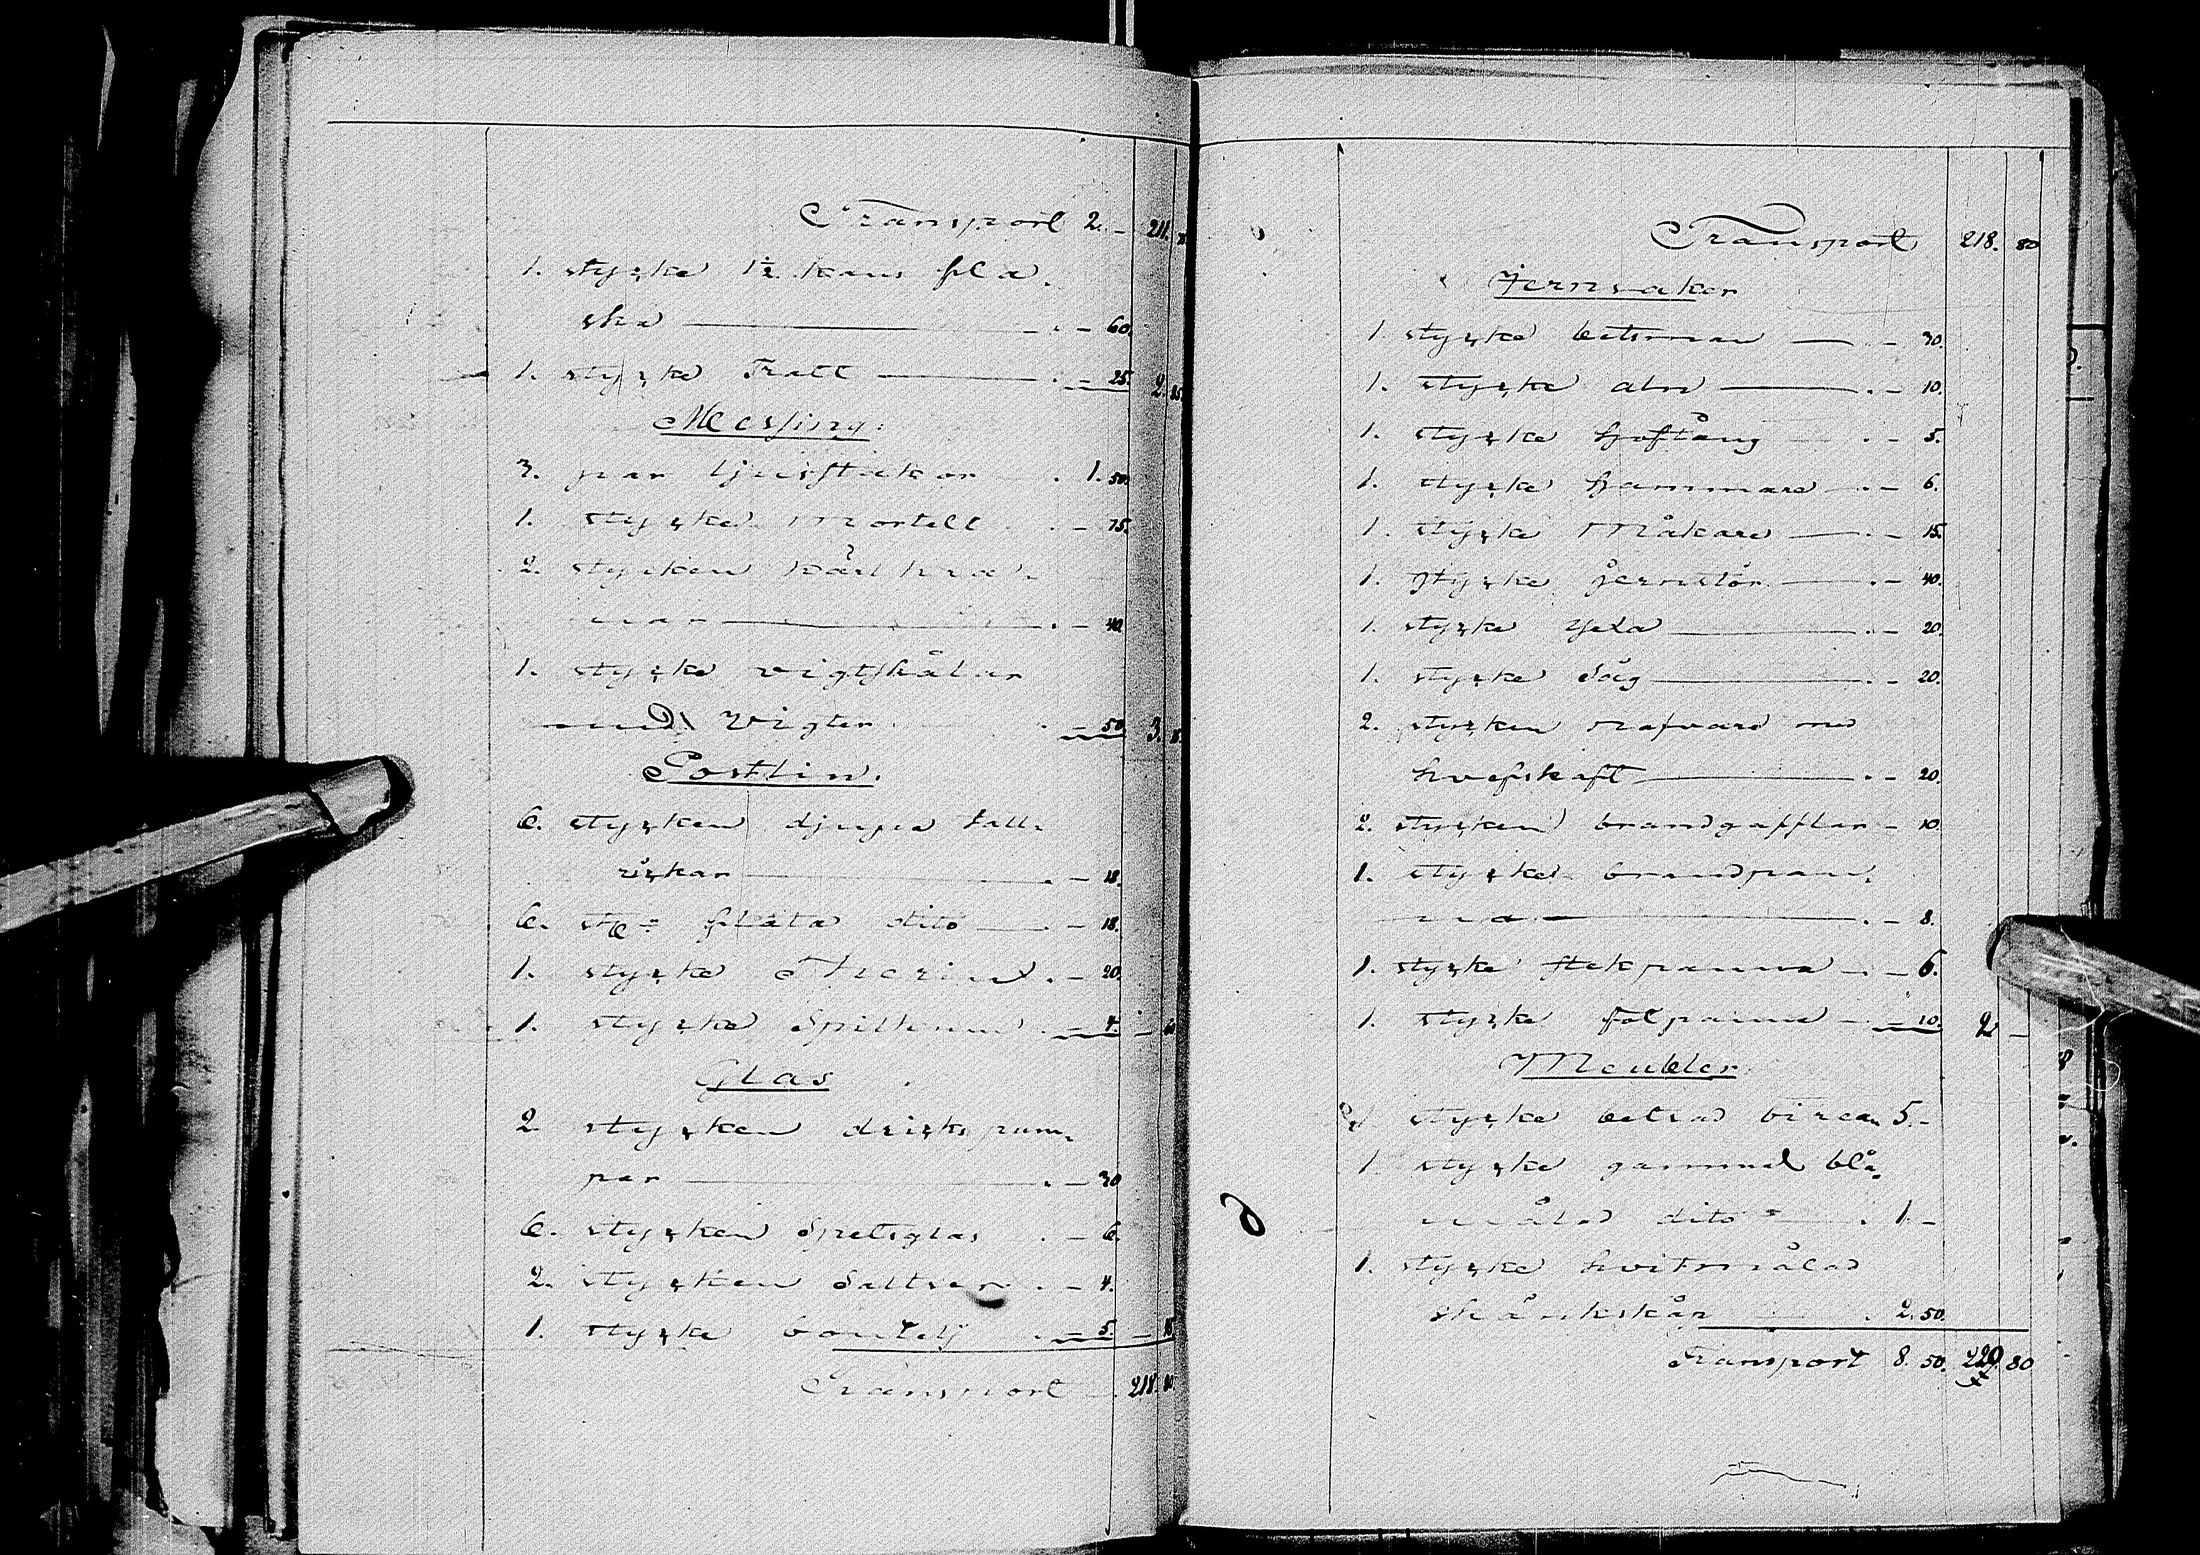 Transport 2. — 211.
1. stycke 1½ kans fla-
ska — 60.
1. stycke Tratt — 25. 2. 85.
Messing.
3. par ljusstakar 1. 50.
1. stycke Mortell — 75.
2. stycken kärlkra-
nar — 40.
1. stycke vigtskålar
med Vigter — 50. 3. 15.
Postlin.
6. stycken djupa tall-
rickar — 18.
6. st: flata dito — 18.
1. stycke Therin — 20
1. stycke Spillkum — 4. — 60
Glas
2 stycken dricks pum-
par — 30
6. stycken Spetsglas — 6.
2. stycken Saltser — 4.
1. stycke boutelj — 5. — 45
Transport 218. 80.
Transport 218. 80
Jernsaker
1. stycke betsman — 30.
1. stycke aln — 10.
1. stycke hoftång — 5.
1. stycke hammare — 6.
1. stycke Måkare — 15.
1. stycke Jernstör — 40.
1. stycke yxa — 20.
1. stycke Såg — 20.
2. stycken nafvare med
hvefskaft — 20.
2. stycken brandgafflar — 10.
1. stycke brandpan-
na — 8.
1. stycke stekpanna — 6.
1. stycke folpanna — 10. 2 —
Meubler
stycke betsad birea 5. —
1 stycke gammal blå-
målad dito 1 —
1. stycke hvitmålad
skänkskåp 2. 50.
Transport 8. 50. 220. 80